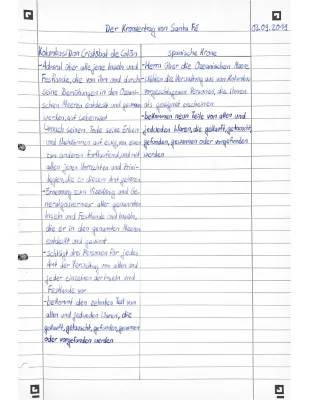 Der Kronvertrag von Santa Fé
02.09.2021
Kolumbus/Don Cristóbal de Colón
- Admiral über alle jene Inseln und
Festlande, die von ihm und durch
seine Bemühungen in den Ozeani-
schen Meeren entdeckt und gewonnen
werden, auf Lebenszeit
nach seinem Tode seine Erben
und Nachkommen auf ewig, von einem
zum anderen fortlaufend, und mit
allen jenen Vorrechten und Privi-
legien, die zu diesem Amt gehören
- Ernennung zum Vizekönig und Ge-
neralgouverneur aller genannten
Inseln und Festlande und Inseln,
die er in den genannten Meeren
entdeckt und gewinnt
- schlägt drei Personen für jedes
Amt der Verwaltung von allen und
jeder einzelnen der Inseln und
Festlande vor
- bekommt den zehnten Teil von
allen und jedweden Waren, die
gekauft, getauscht, gefunden, gewonnen
oder vorgefunden werden
spanische Krone
- Herrn über die Ozeanischen Meere
- wählen die Verwaltung aus von Kolumbus
vorgeschlagenen Personen, die ihnen
als geeignet erscheinen
- bekommen neun Teile von allen und
jedweden Waren, die gekauft, getauscht,
gefunden, gewonnen oder vorgefunden
werden